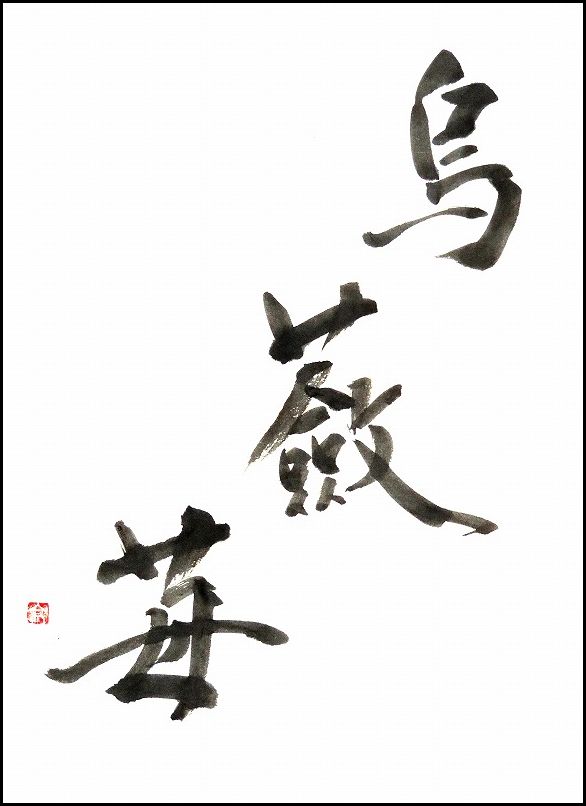 烏
蘞
苺